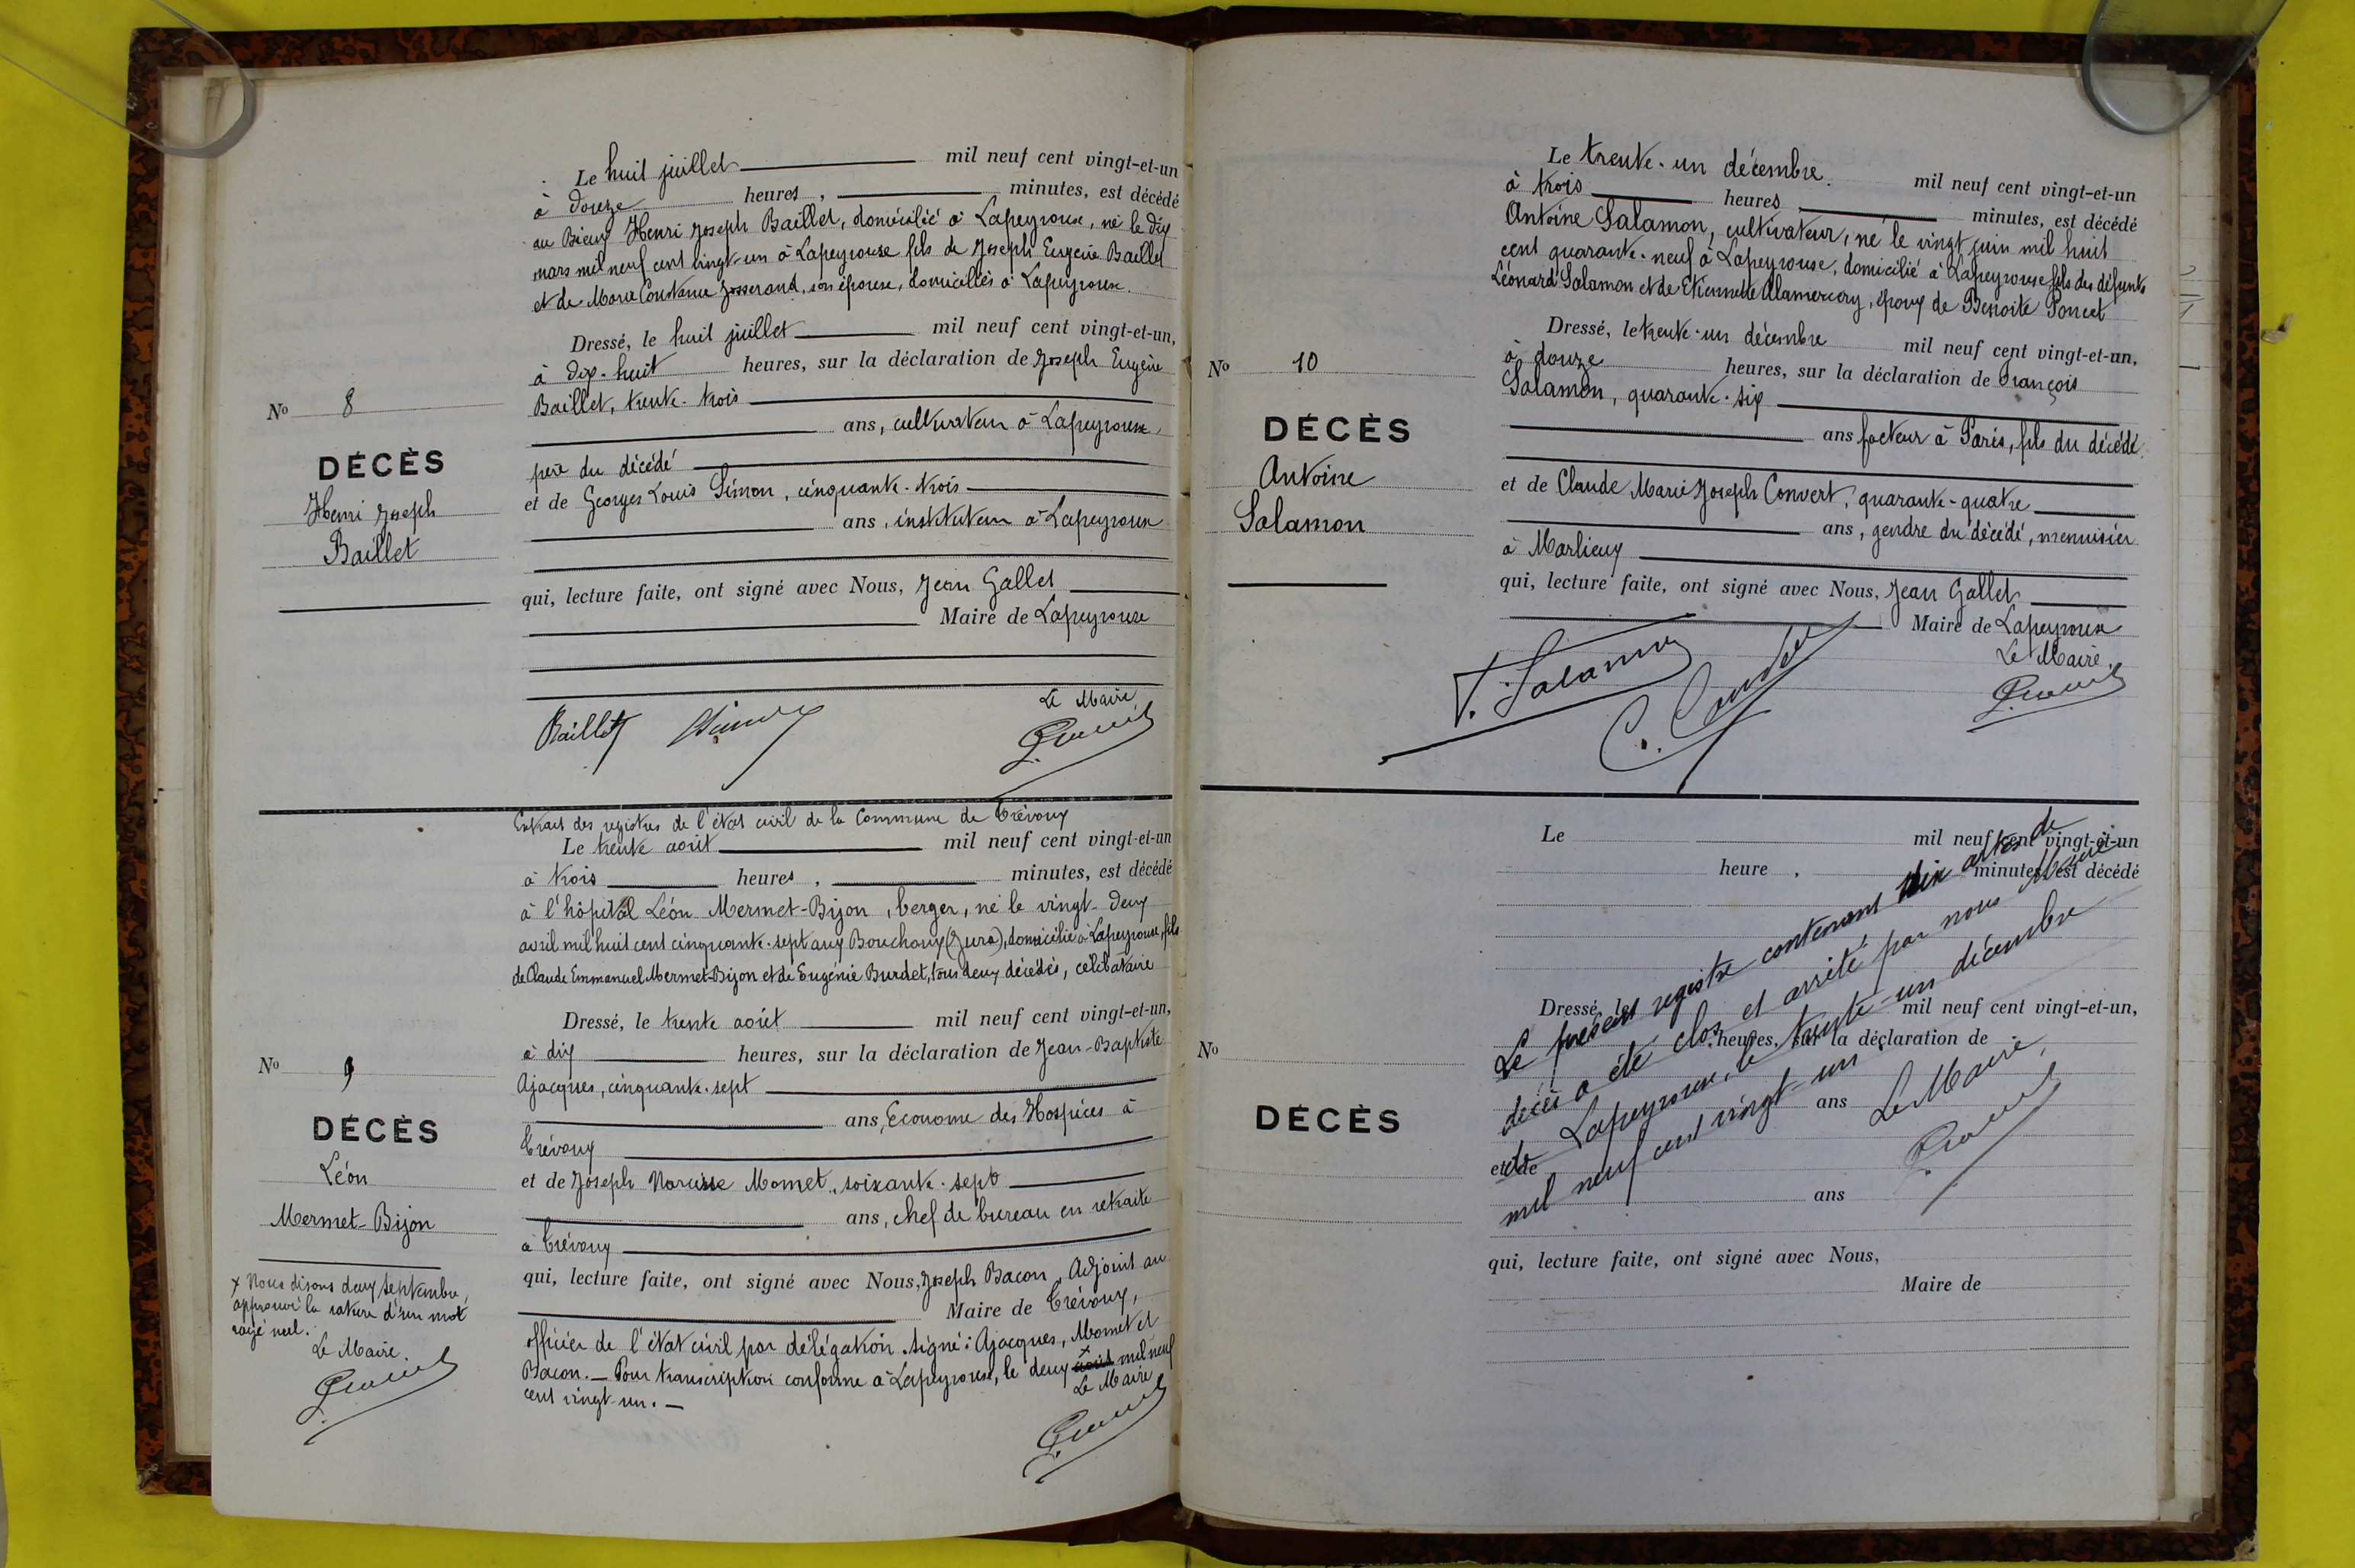 Le huit juillet mil neuf cent vingt-et-un
à douze heures, minutes, est décédé
au Bieux Henri Joseph Baillet, domicilié à Lapeyrouse, né le dix
mars mil neuf cent vingt-un à Lapeyrouse fils de Joseph Eugène Baillet
et de Marie Constance Josserand, son épouse, domiciliés à Lapeyrouse.
Dressé, le huit juillet mil neuf cent vingt-et-un,
à dix-huit heures, sur la déclaration de Joseph Eugène
Baillet, trente-trois
ans, cultivateur à Lapeyrouse,
père du décédé
et de Georges Louis Simon, cinquante-trois
ans, instituteur à Lapeyrouse
qui, lecture faite, ont signé avec Nous, Jean Gallet
Maire de Lapeyrouse
Le Maire
Baillet
No 8
DÉCÈS
Henri Joseph
Baillet
Extrait des registres de l'état civil de la Commune de Trévoux
Le trente août mil neuf cent vingt-et-un
à trois heures, minutes, est décédé
à l'hôpital Léon Mermet-Bijon, berger, né le vingt-deux
avril mil huit cent cinquante-sept aux Bouchoux (Jura), domicilié à Lapeyrouse, fils
de Claude Emmanuel Mermet-Bijon et de Eugénie Burdet, tous deux décédés, célibataire
Dressé, le trente août mil neuf cent vingt-et-un,
à dix heures, sur la déclaration de Jean-Baptiste
Ajacques, cinquante-sept
ans, Econome des Hospices à
Trévoux
et de Joseph Narcisse Momet, soixante-sept
ans, chef de bureau en retraite
à Trévoux
qui, lecture faite, ont signé avec Nous, Joseph Bacon, Adjoint au
Maire de Trévoux,
officier de l'état civil par délégation. Signé: Ajacques, Momet et
Bacon. — Pour transcription conforme à Lapeyrouse, le deux x août mil neuf
cent vingt-un. —
Le Maire
No 9
DÉCÈS
Léon
Mermet-Bijon
x Nous disons deux septembre,
approuvé la rature d'un mot
rayé nul.
Le Maire.
Le trente-un décembre. mil neuf cent vingt-et-un
à trois heures minutes, est décédé
Antoine Salamon, cultivateur, né le vingt juin mil huit
cent quarante-neuf à Lapeyrouse, domicilié à Lapeyrouse fils des défunts
Léonard Salamon et de Etiennette Alamercery, époux de Benoite Poncet
Dressé, le trente-un décembre mil neuf cent vingt-et-un,
à douze heures, sur la déclaration de François
Salamon, quarante-six
ans facteur à Paris, fils du décédé
et de Claude Marie Joseph Convert, quarante-quatre
ans, gendre du décédé, menuisier
à Marlieux
qui, lecture faite, ont signé avec Nous, Jean Gallet
Maire de Lapeyrouse
Le Maire.
F. Salamon
No 10
DÉCÈS
Antoine
Salamon
Le mil neuf cent vingt-et-un
heure, minutes, est décédé
Dressé, le mil neuf cent vingt-et-un,
heures, sur la déclaration de
ans
et de
ans
qui, lecture faite, ont signé avec Nous,
Maire de
No
DÉCÈS
Le présent registre contenant dix actes de
décès a été clos et arrêté par nous Maire
de Lapeyrouse, le trente-un décembre
mil neuf cent vingt-un.
Le Maire,